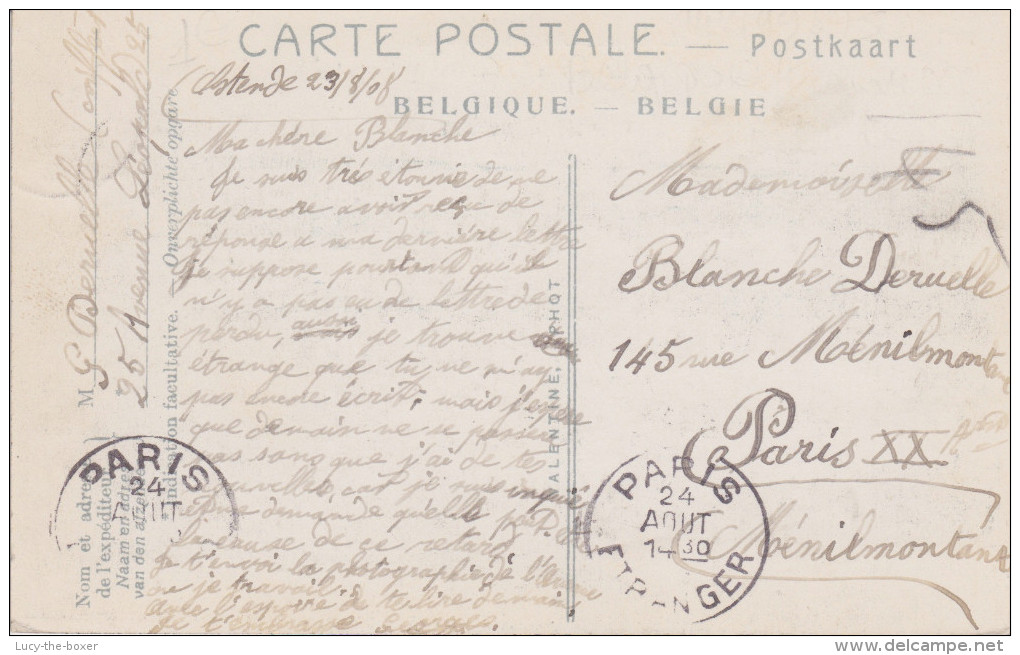 CARTE POSTALE. — Postkaart
BELGIQUE. — BELGIE
Ostende 23/8/08
Ma chère Blanche
Je suis très étonné de ne
pas encore avoir reçu de
réponse a ma dernière lettre
je suppose pourtant qu'il
n'y a pas eu de lettre de
perdu, aussi je trouve
étrange que tu ne m'ay
pas encore écrit, mais j'espère
que demain ne se passera
pas sans que j'ai de tes
nouvelles, car je suis inquiet
et me demande quelle peut être
la cause de ce retard
Je t'envoi la photographie de l'Avenue
ou je travail.
Avec l'espoir de te lire demain
je t'embrasse Georges
Mademoiselle
Blanche Deruelle
145 rue Ménilmontant
Paris XX Arrt
Ménilmontant
M G Deruelle
25 Avenue Léopold 25
Nom et adresse
de l'expéditeur
Naam en adres
van den afzender
Indication facultative. — Onverplichte opgave.
VALENTINE, PHOT
PARIS
24
AOUT
PARIS
24
AOUT
14 30
ETRANGER
Lucy-the-boxer
delcampe.net